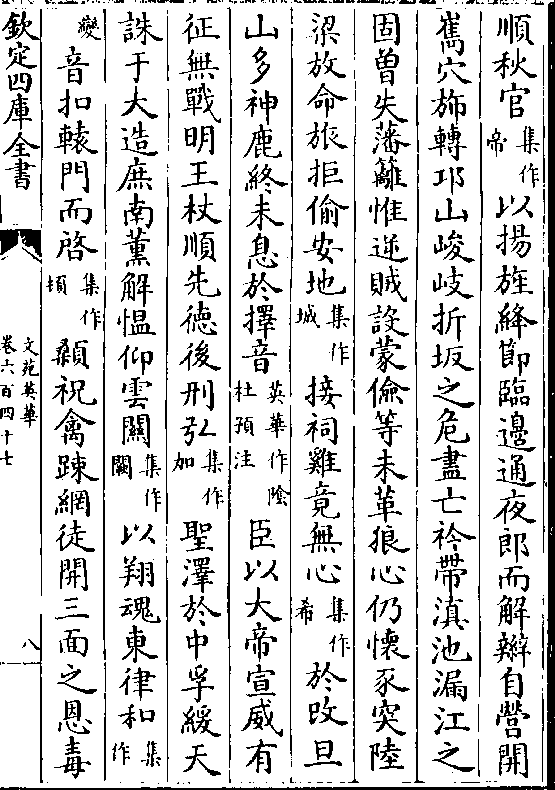 順秋官集作帝以揚旌絳節臨邊通夜郎而解辮自營開
嶲穴斾轉邛山峻岐折坂之危盡亡衿帶滇池漏江之
固曽失藩籬惟逆賊設蒙儉等未革狼心仍懷豕突陸
梁放命旅拒偷安地集作城接祠雞竟無心集作希於改旦
山多神鹿終未息於擇音英華作隂杜預注臣以大帝宣威有
征無戰明王杖順先德後刑弘集作加聖澤於中孚緩天
誅于大造庶南薫解愠仰雲闗集作闕以翔魂東律和集作
變音扣轅門而啓集作頓顙祝禽踈網徒開三面之恩毒
欽定四庫全書
文苑英華
卷六百四十七
八